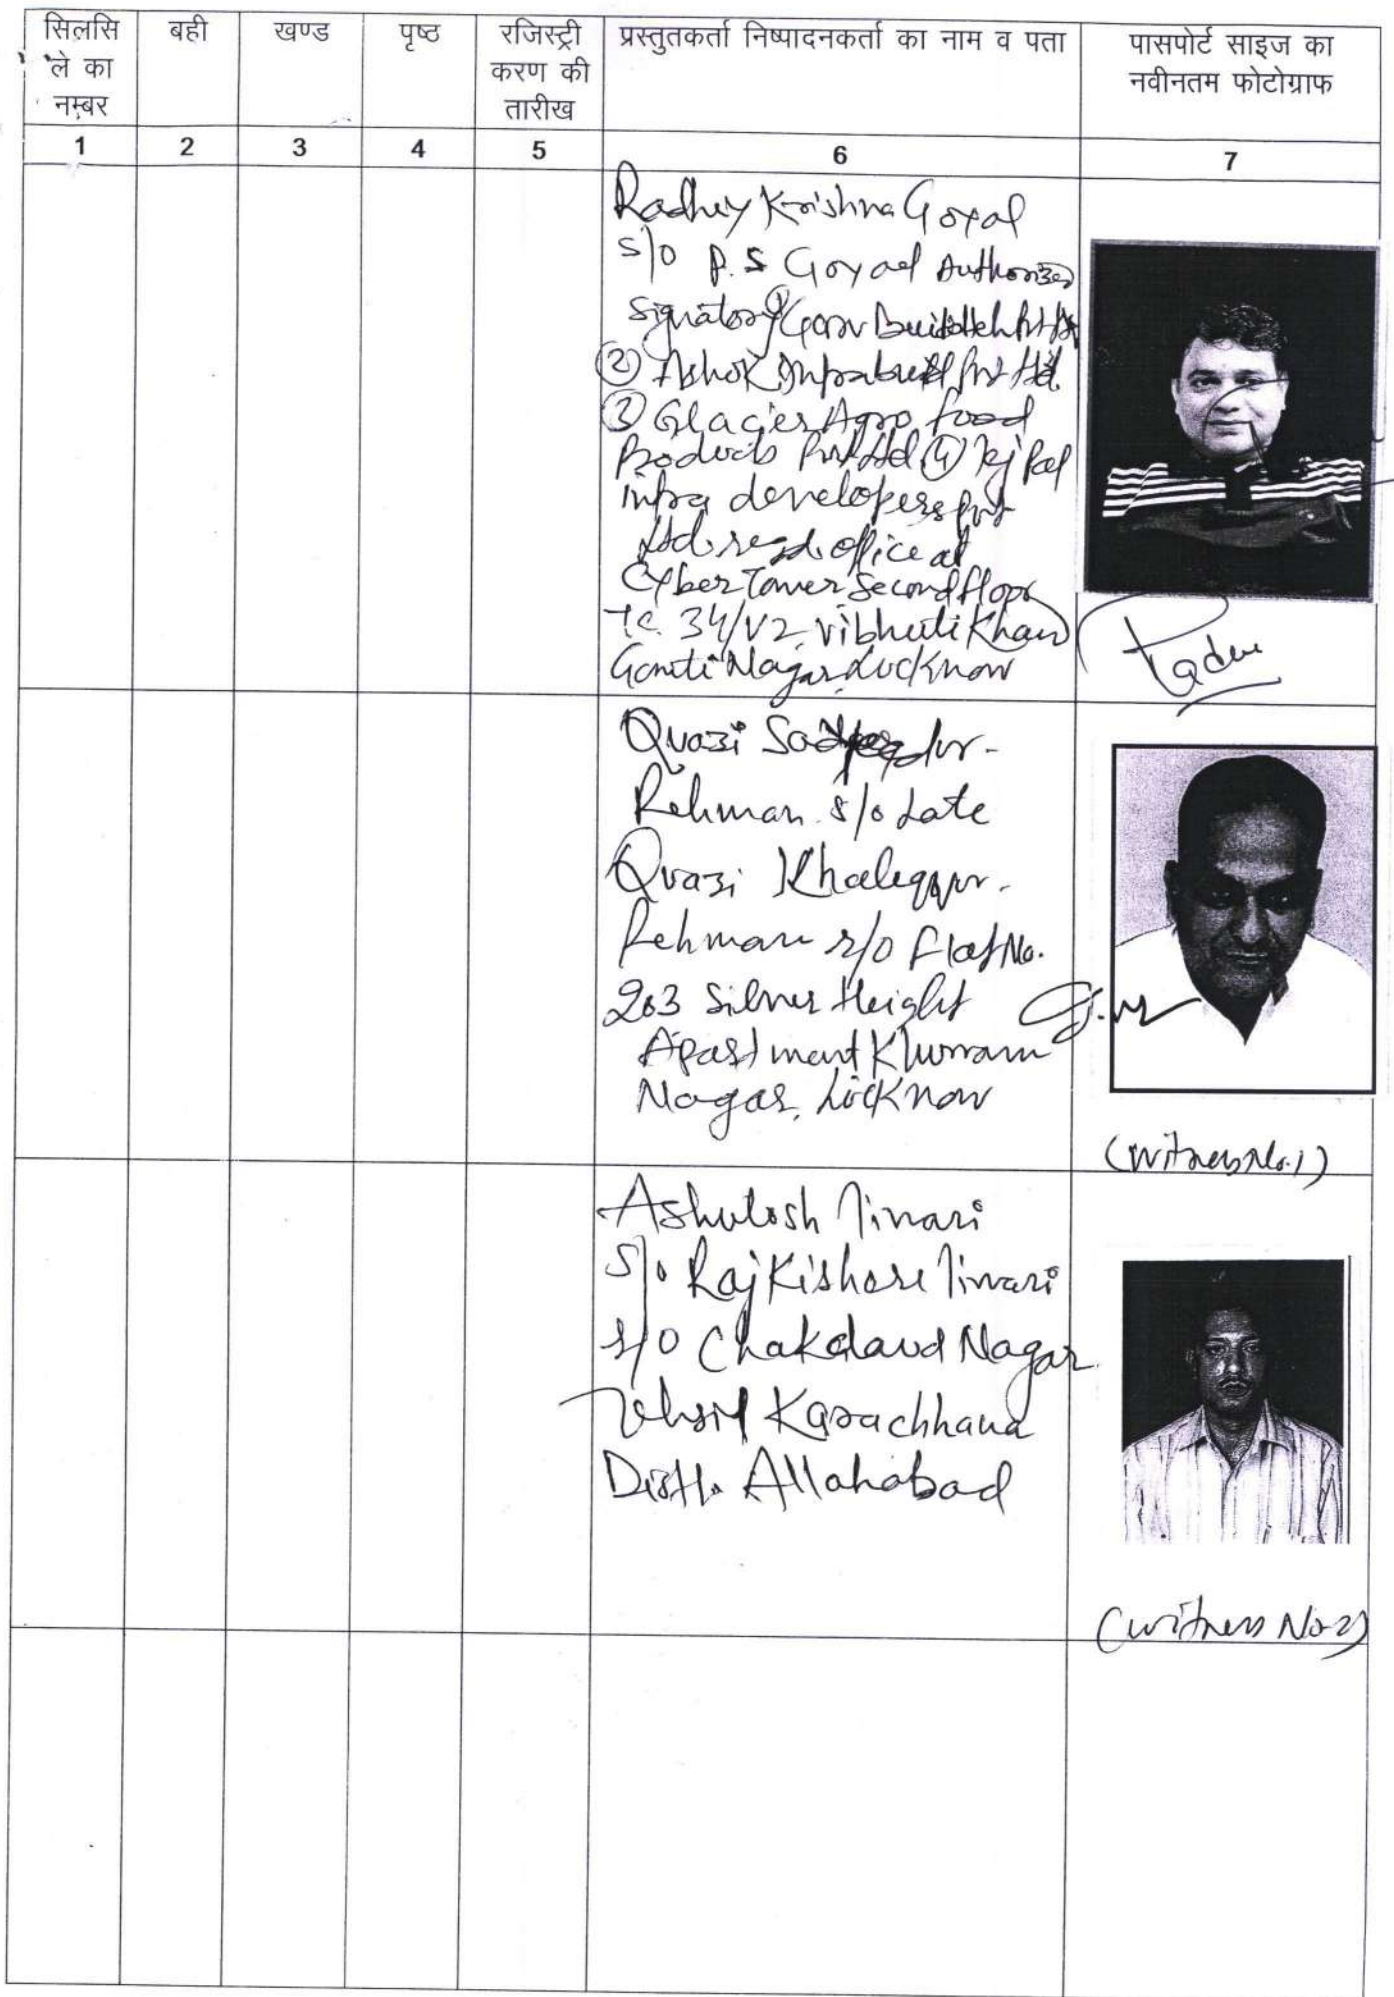 सिलसि
ले का
नम्बर
बही
खण्ड
पृष्ठ
रजिस्ट्री
करण की
तारीख
प्रस्तुतकर्ता निष्पादनकर्ता का नाम व पता
पासपोर्ट साइज का
नवीनतम फोटोग्राफ
1 2 3 4 5 6 7
Radhey Krishna Goyal
s/o P.S Goyal Authorized
signatory ① Buildtech Pvt Ltd
② Ashok Infrabuild Pvt Ltd.
③ Glacier Agro food
Products Pvt Ltd ④ Tej Pal
infra developers pvt
Ltd. regd. office at
Cyber Tower Second floor
TC. 34/V2, Vibhuti Khand
Gomti Nagar Lucknow
Quazi
Rehman s/o Late
Quazi
Rehman r/o Flat No.
203 Silver Height
Apartment Khurram
Nagar, Lucknow
(Witness No.1)
Ashutosh Tiwari
S/o Raj Kishore Tiwari
r/o Chakdaud Nagar
Tehsil Karachhana
Distt. Allahabad
(witness No-2)